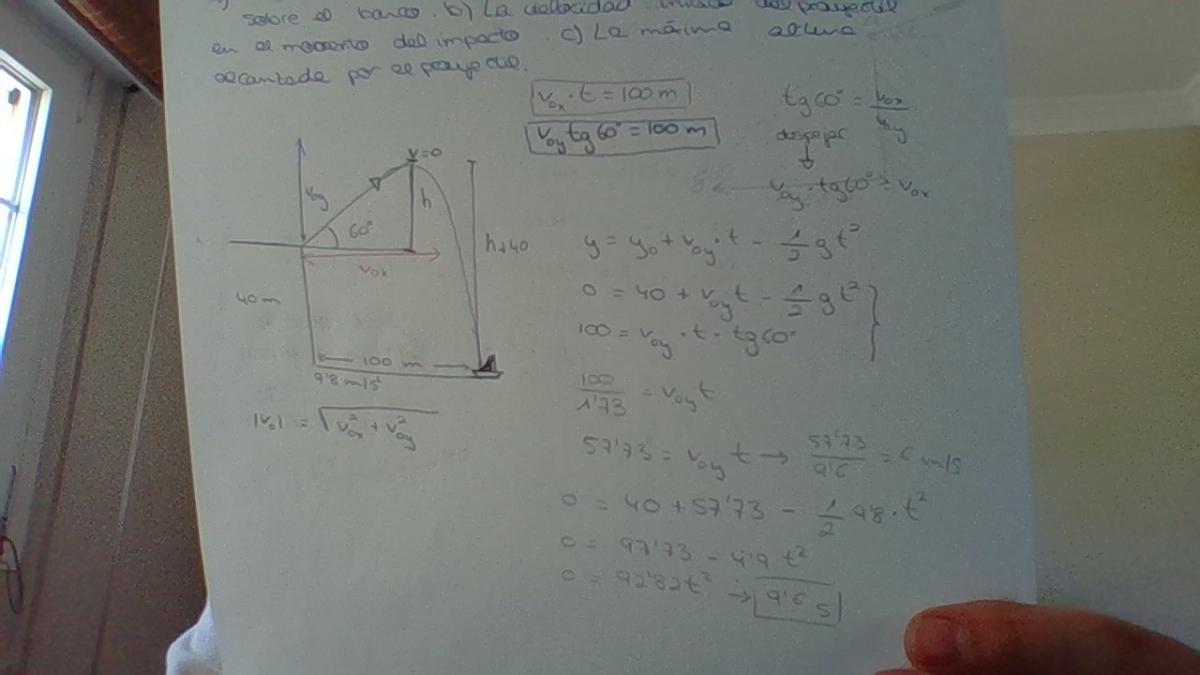 sobre el banco. b) La velocidad del proyectil
en el momento del impacto. c) La máxima altura
alcanzada por el proyectil.
v₀ₓ · t = 100 m
v₀y tg60° = 100 m
tg60° = v₀ₓ/v₀y
despejar
v₀y · tg60° = v₀ₓ
v=0
v₀y
60°
h
h+40
v₀ₓ
40 m
100 m
9'8 m/s²
|v₀| = √(v₀ₓ² + v₀y²)
y = y₀ + v₀y · t - 1/2 g t²
0 = 40 + v₀y t - 1/2 g t² }
100 = v₀y · t · tg60°
100/1'73 = v₀y t
57'73 = v₀y t → 57'73/9'6 = 6 m/s
0 = 40 + 57'73 - 1/2 9'8 · t²
0 = 97'73 - 4'9 t²
0 = 92'82 t² → 9'6 s